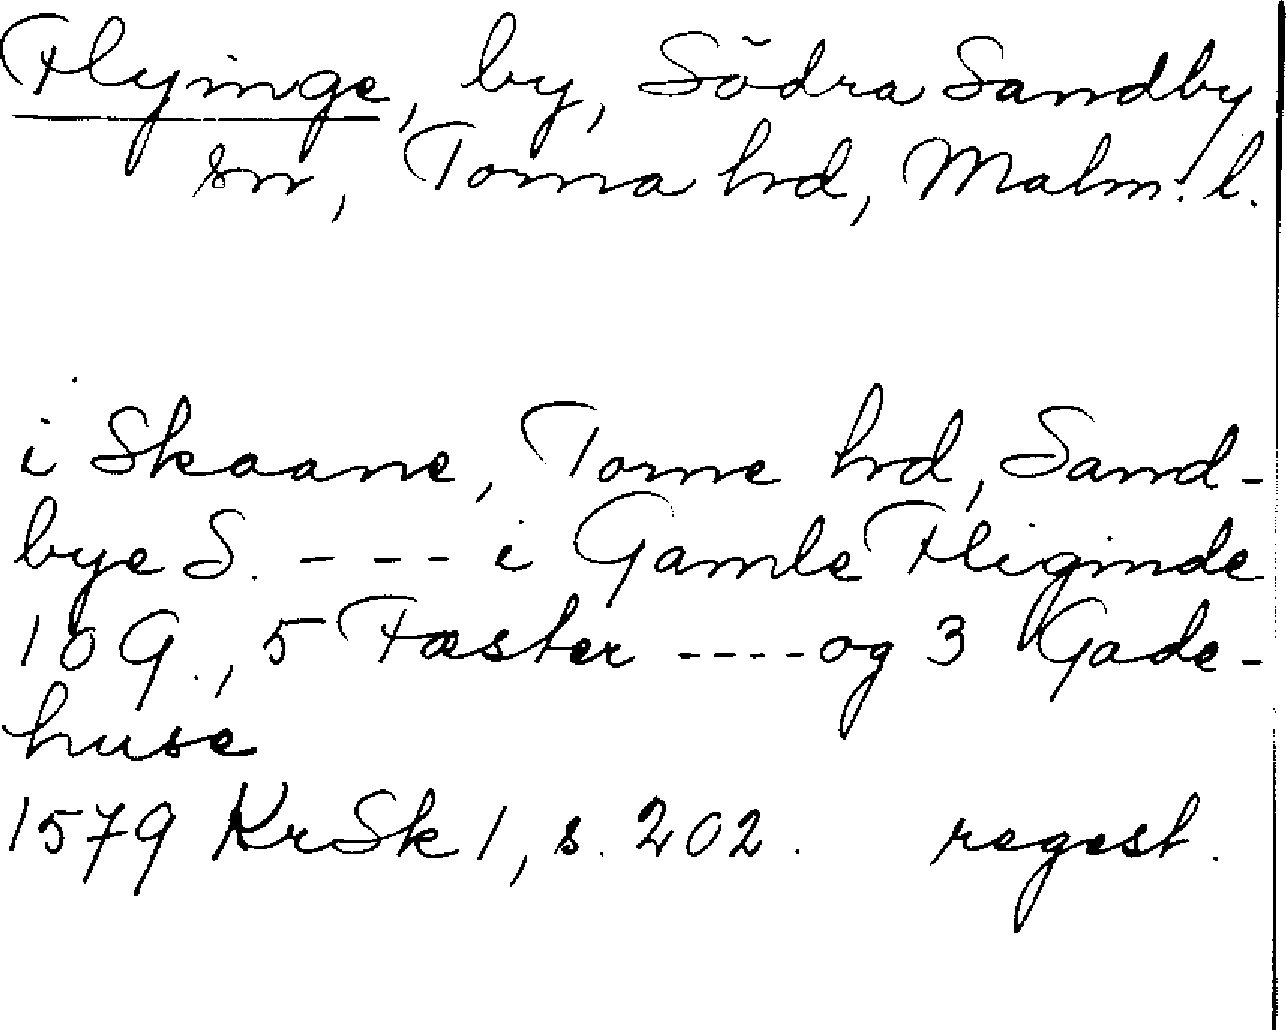 Flyinge, by, Södra Sandby
sn, Torna hrd, Malm. l.
i Skaane, Torne hrd, Sand-
bye S. --- i Gamle Fliginde
10 G., 5 Fæster ---- og 3 Gade-
huse
1579 KrSk 1, s. 202. regest.